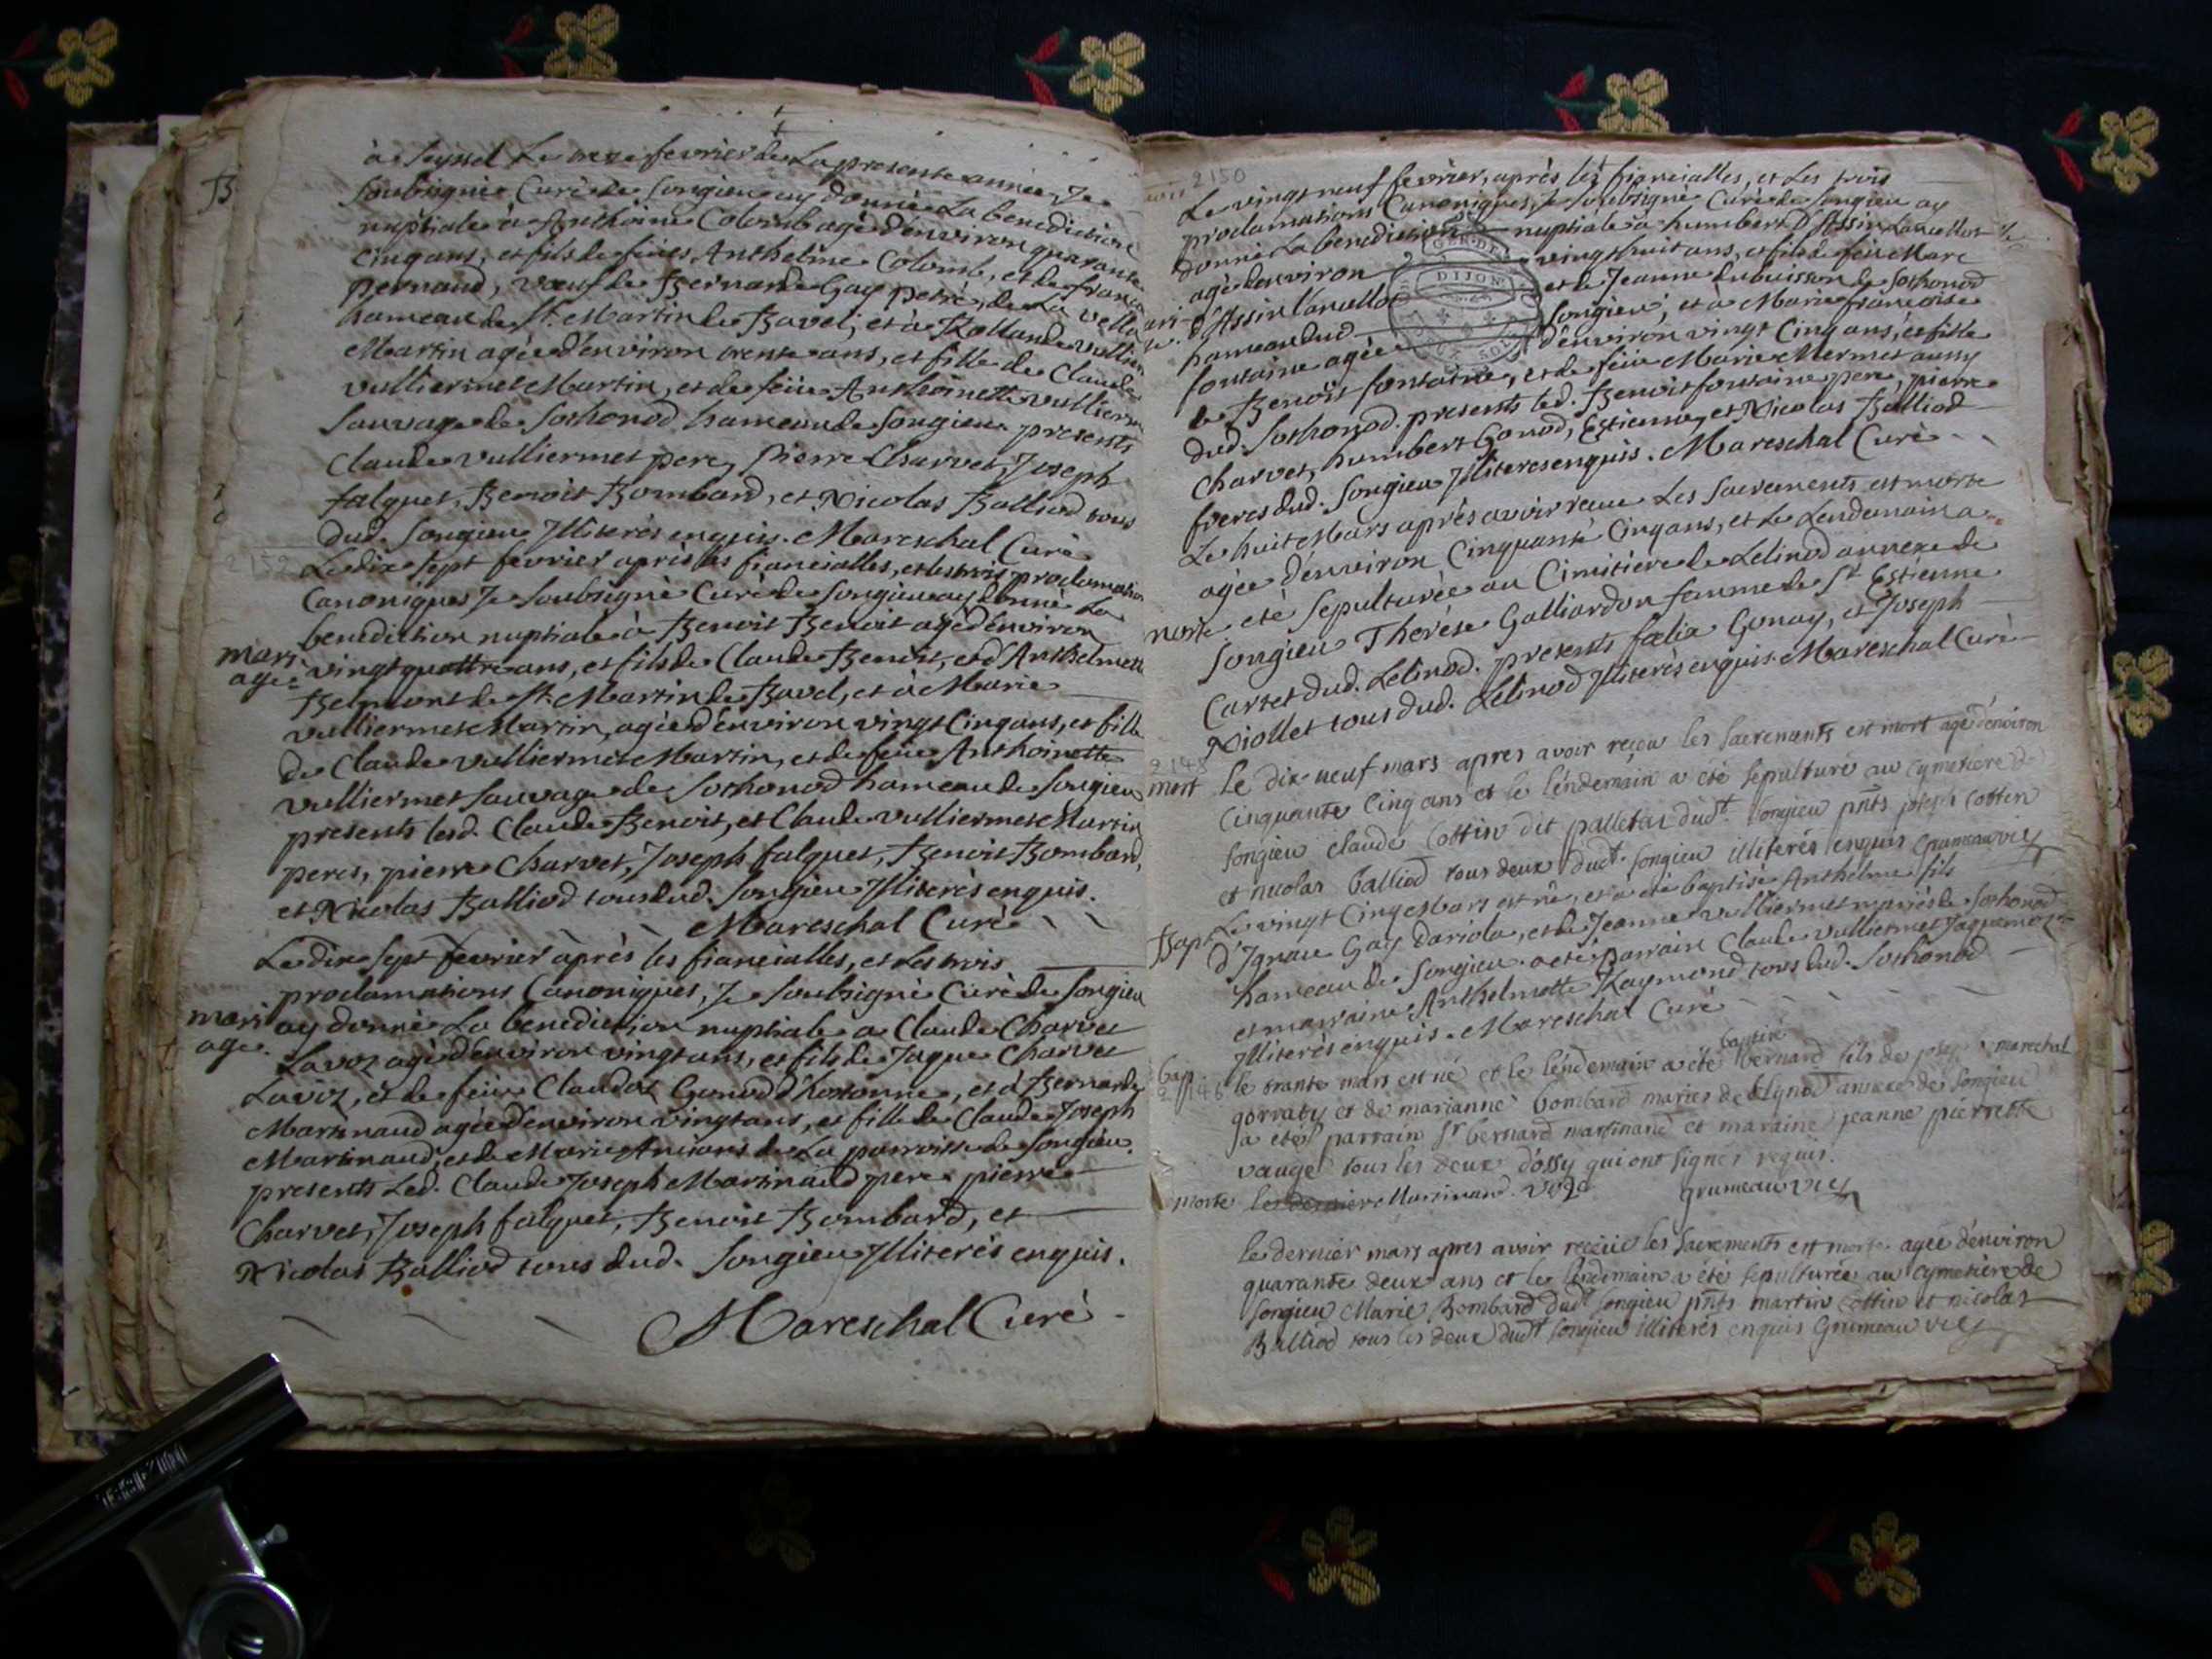 à Seyssel Le onze fevrier de La presente année, Je
soubsigné Curé de Songieu ay donné La benediction
nuptiale à Anthoine Colomb agé d'environ quarante
cinq ans, et fils de feües Anthelme Colomb, et de franç
pernaud, vœuf de Bernarde Gay petré, de La vella
hameau de St. Martin de Bavel, et à Rollande vullier
Martin agée d'environ trente ans, et fille de Claude
vulliermet Martin, et de feüe Anthoinette vullierm
Sauvage de Sothonod hameau de Songieu presents
Claude vulliermet pere, pierre Charvet, Joseph
falquet, Benoit Bombard, et Nicolas Balliod tous
dud. Songieu Jlliterés enquis. Mareschal Curé
2152
Le dix sept fevrier après les fiancialles, et les trois proclamation
Canoniques Je Soubsigné Curé de Songieu ay donné La
benediction nuptiale à Benoit Benoit agé d'environ
mari
age
vingt quattre ans, et fils de Claude Benoit, et d'Anthelmett
Belmont de St. Martin de Bavel, et à Marie
vulliermet Martin, agée d'environ vingt Cinq ans, et fille
de Claude vulliermet Martin, et de feüe Anthoinette
vulliermet Sauvage de Sothonod hameau de Songieu
presents lesd. Claude Benoit, et Claude vulliermet Martin
peres, pierre Charvet, Joseph falquet, Benoit Bombard,
et Nicolas Balliod tous dud. Songieu Jlliterés enquis.
Mareschal Curé
Le dix sept fevrier après les fiancialles, et Les trois
proclamations Canoniques, Je Soubsigné Curé de Songieu
mari
age.
ay donné La benediction nuptiale a Claude Charvet
Lavoz agé d'environ vingt ans, et fils de Jaque Charvet
Lavoz, et de feüe Claudaz Gonod d'hotonne, et à Bernarde
Martinaud agée d'environ vingt ans, et fille de Claude Joseph
Martinaud, et de Marie Ancians de La parroisse de Songieu.
presents Led. Claude Joseph Martinaud pere pierre
Charvet, Joseph falquet, Benoit Bombard, et
Nicolas Balliod tous dud. Songieu Jlliterés enquis.
Mareschal Curé
2150
Le vingt neuf fevrier, après les fiancialles, et Les trois
proclamations Canoniques, Je Soubsigné Curé de Songieu ay
donné La benediction nuptiale à humbert D'Assin Lavullot
agé d'environ vingt huit ans, et fils de feu Marc
d'Assin Lavullot et de Jeanne dubuisson de Sothonod
hameau dud. Songieu, et à Marie françoise
fontaine agée d'environ vingt Cinq ans, et fille
DIJON
de Benoit fontaine, et de feüe Marie Mermet aussy
dud. Sothonod. presents led. Benoit fontaine pere, pierre
Charvet, humbert Gonod, Estienne, et Nicolas Balliod
freres dud. Songieu Jlliteres enquis. Mareschal Curé
Le huit Mars après avoir receu Les Sacrements est morte
agée d'environ Cinquante Cinq ans, et Le Lendemain a
morte
eté Sepulturée au Cimitiere de Lilinod annexe de
Songieu Therése Galliardon femme de St Estienne
Cartet dud. Lilinod. presents fœlix Gonay, et Joseph
Niollet tous dud. Lilinod Jlliterés enquis. Mareschal Curé
2148
mort
Le dix-neuf mars apres avoir reçeu les Sacrements est mort agé d'environ
Cinquante Cinq ans et le lendemain a été sepulturé au cymetiere de
Songieu claude Cottin dit palletaz dudt. Songieu pnts joseph Cottin
et nicolas balliod tous deux dudt. Songieu illiterés enquis Grumeau vic
Bapt
Le vingt Cinq Mars est né, et a eté baptisé Anthelme fils
d'Ignace Gay Dariola, et de Jeanne vulliermet mariés de Sothonod
hameau de Songieu. a eté parrain Claude vulliermet Jaquemoz
et marraine Anthelmette Raymond tous dud. Sothonod
Jlliterés enquis. Mareschal Curé
bap
2146
baptisé
le trante mars est né et le lendemain a été bernard fils de joseph marechal
gorraty et de marianne bombard mariés de lilynod annexe de Songieu
a eté parrain Sr bernard martinand et maraine jeanne pierrette
vauge tous les deux d'ossy qui ont signés requis.
morte
Martinand. voge grumeau vic
le dernier mars apres avoir reçeüe les Sacrements est morte agée d'environ
quarante deux ans et le lendemain a été sepulturée au cymetiere de
Songieu Marie Bombard dudt Songieu pnts martin Cottin et nicolas
Balliod tous les deux dudt Songieu illiterés enquis Grumeau vic